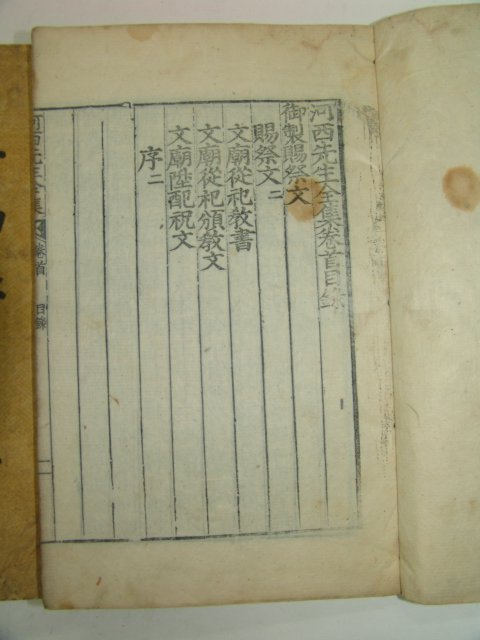 河西先生全集卷首目錄
御製賜祭文
賜祭文二
文廟從祀敎書
文廟從祀頒敎文
文廟陞配祝文
序二
河西先生全集 卷首 目錄 一